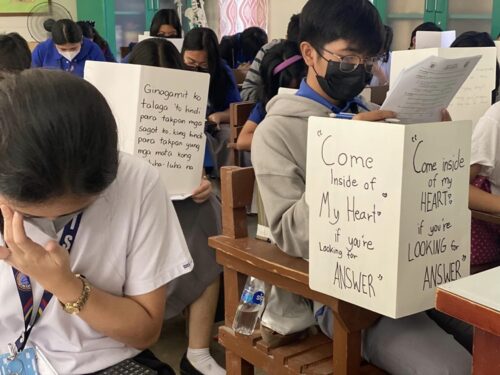 Ginagamit ko
talaga 'to hindi
para takpan mga
sagot ko, kung hindi
para takpan yung
mga mata kong
luha-luha na
"Come
Inside of
My Heart
if you're
Looking for
ANSWER"
"Come inside
of my
HEART
if you're
LOOKING for
ANSWER"